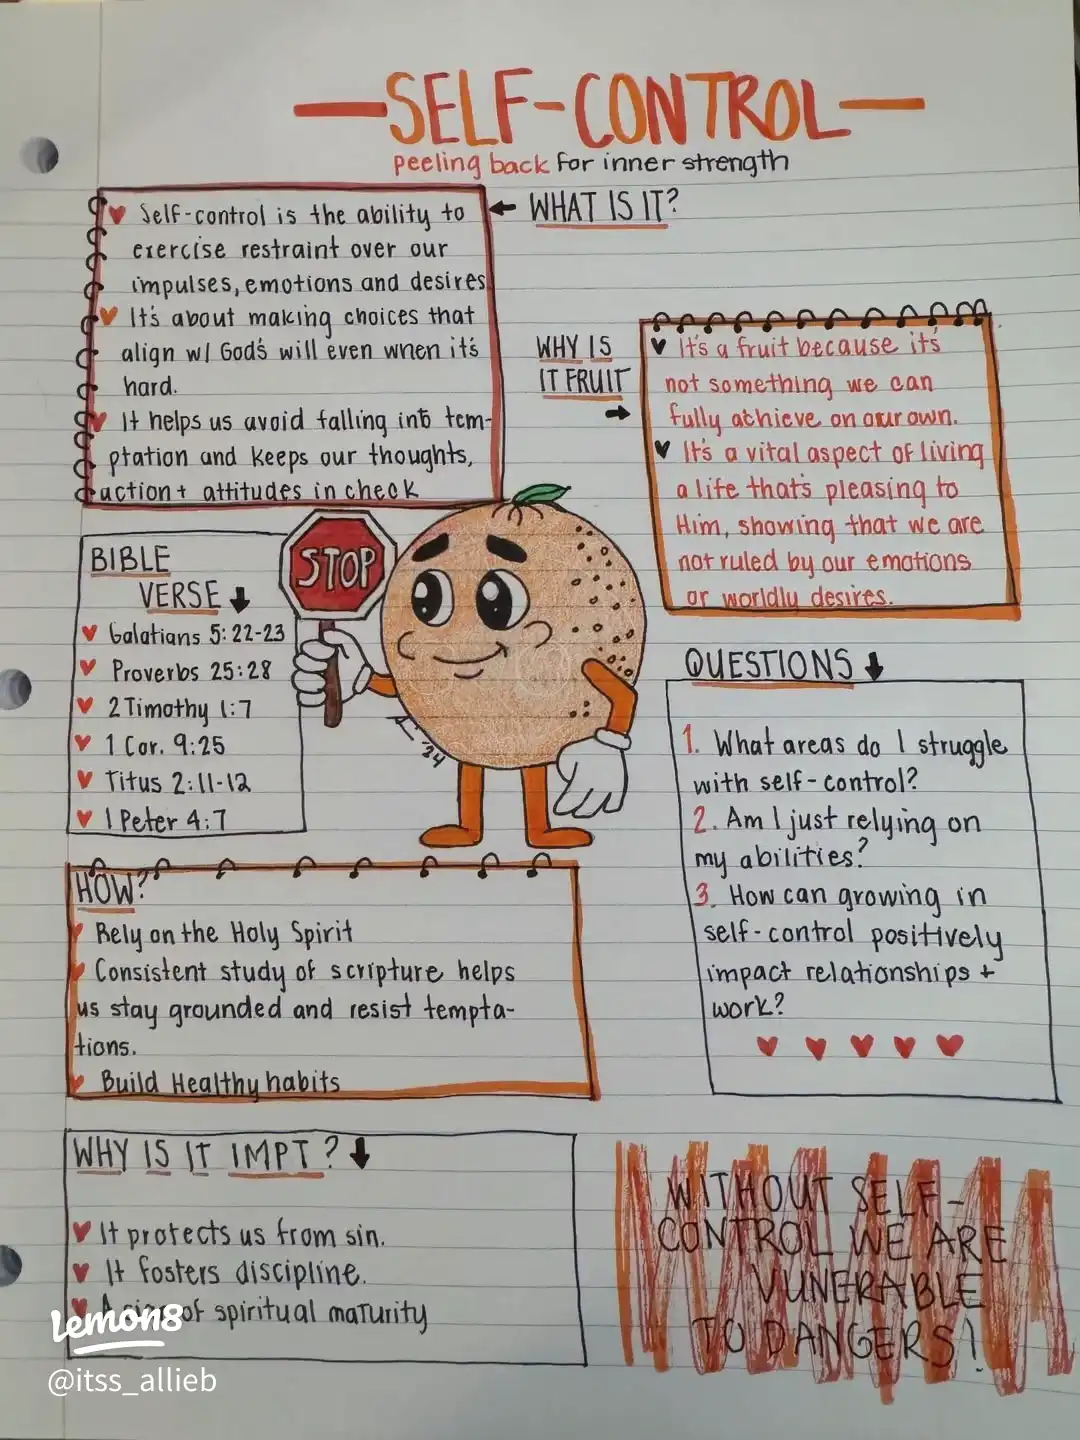 SELF-CONTROL
peeling back for inner strength
← WHAT IS IT?
Self-control is the ability to
exercise restraint over our
impulses, emotions and desires
It's about making choices that
align w/ God's will even when it's
hard.
It helps us avoid falling into tem-
ptation and keeps our thoughts,
action + attitudes in check
WHY IS
IT FRUIT
→
It's a fruit because it's
not something we can
fully achieve on our own.
It's a vital aspect of living
a life that's pleasing to
Him, showing that we are
not ruled by our emotions
or worldly desires.
BIBLE
VERSE ↓
Galatians 5:22-23
Proverbs 25:28
2 Timothy 1:7
1 Cor. 9:25
Titus 2:11-12
1 Peter 4:7
STOP
'24
QUESTIONS ↓
1. What areas do I struggle
with self-control?
2. Am I just relying on
my abilities?
3. How can growing in
self-control positively
impact relationships +
work?
HOW?
Rely on the Holy Spirit
Consistent study of scripture helps
us stay grounded and resist tempta-
tions.
Build Healthy habits
WHY IS IT IMPT? ↓
It protects us from sin.
It fosters discipline.
A sign of spiritual maturity
WITHOUT SELF-
CONTROL WE ARE
VUNERABLE
TO DANGERS!
lemon8
@itss_allieb